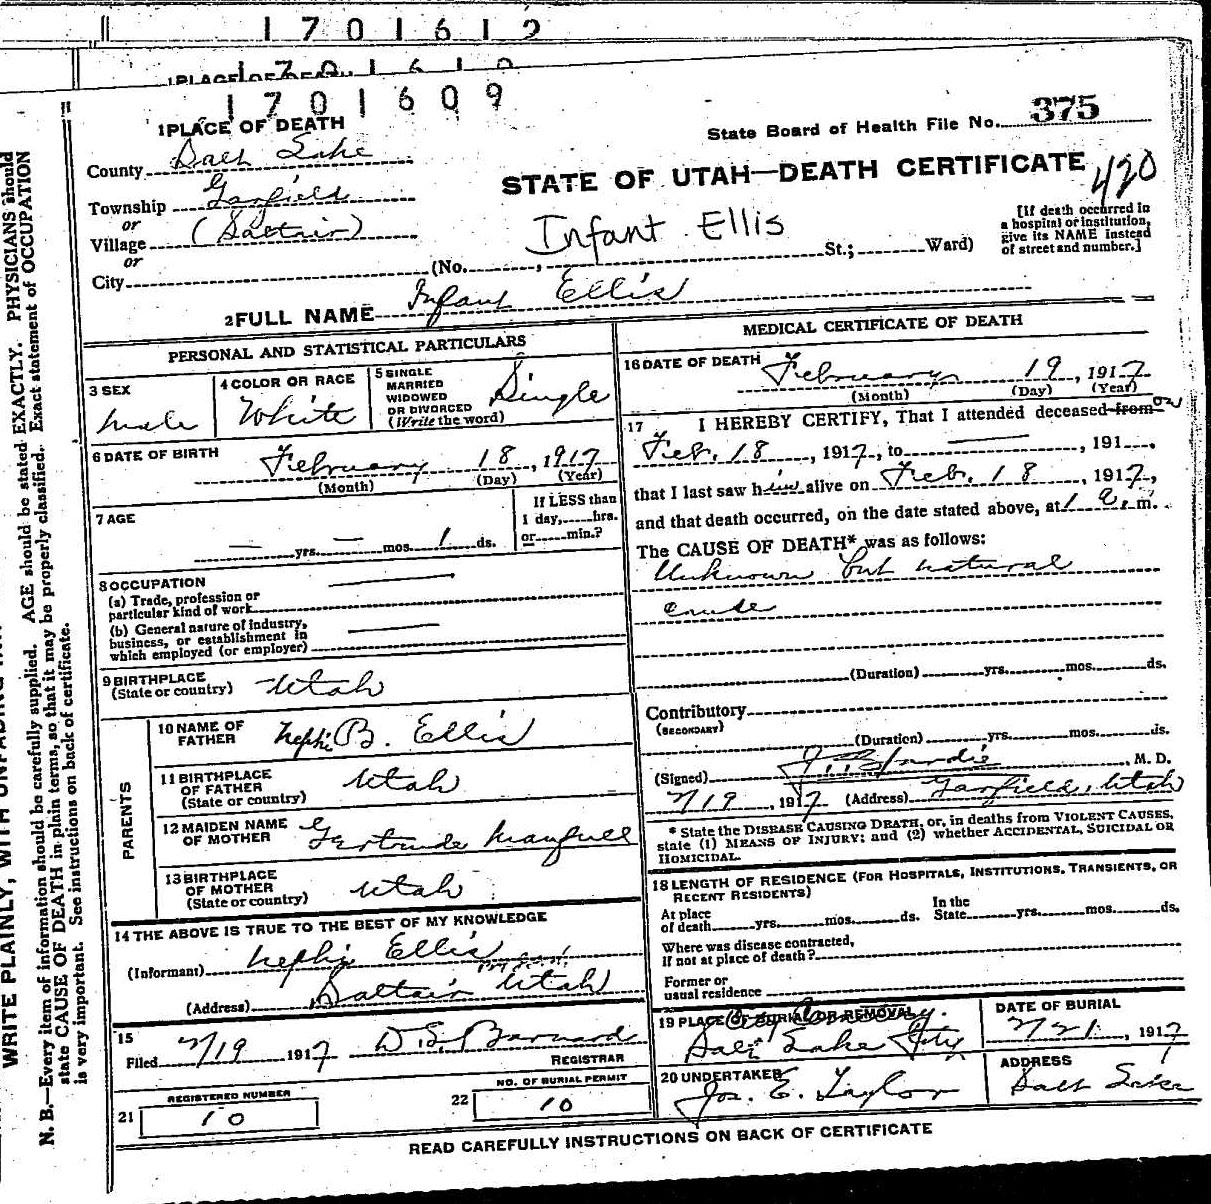 1701612
1 PLACE OF DEATH
1701609
1 PLACE OF DEATH
State Board of Health File No. 375
County Salt Lake
STATE OF UTAH—DEATH CERTIFICATE
420
Township Garfield
or
Village (Saltair)
or
City
Infant Ellis
(No. , St.; Ward)
[If death occurred in
a hospital or institution,
give its NAME instead
of street and number.]
2 FULL NAME Infant Ellis
PERSONAL AND STATISTICAL PARTICULARS
3 SEX
male
4 COLOR OR RACE
White
5 SINGLE
MARRIED
WIDOWED
OR DIVORCED
(Write the word)
Single
6 DATE OF BIRTH
February 18, 1917
(Month) (Day) (Year)
7 AGE
— yrs. — mos. 1 ds.
If LESS than
1 day, hrs.
or min.?
8 OCCUPATION
(a) Trade, profession or
particular kind of work
(b) General nature of industry,
business, or establishment in
which employed (or employer)
9 BIRTHPLACE
(State or country) Utah
PARENTS
10 NAME OF
FATHER
Nephi B. Ellis
11 BIRTHPLACE
OF FATHER
(State or country)
Utah
12 MAIDEN NAME
OF MOTHER
Gertrude
13 BIRTHPLACE
OF MOTHER
(State or country)
Utah
14 THE ABOVE IS TRUE TO THE BEST OF MY KNOWLEDGE
(Informant) Nephi Ellis
(Address) Saltair Utah
15
Filed 2/19 1917 D. S. Barnard
REGISTRAR
REGISTERED NUMBER
21 10
NO. OF BURIAL PERMIT
22 10
MEDICAL CERTIFICATE OF DEATH
16 DATE OF DEATH
February 19, 1917
(Month) (Day) (Year)
17 I HEREBY CERTIFY, That I attended deceased from on
Feb. 18, 1917, to —, 191
that I last saw him alive on Feb. 18, 1917,
and that death occurred, on the date stated above, at 1 a. m.
The CAUSE OF DEATH* was as follows:
Unknown but natural
cause
(Duration) yrs. mos. ds.
Contributory
(SECONDARY)
(Duration) yrs. mos. ds.
(Signed) , M. D.
2/19, 1917 (Address) Garfield, Utah
* State the DISEASE CAUSING DEATH, or, in deaths from VIOLENT CAUSES,
state (1) MEANS OF INJURY; and (2) whether ACCIDENTAL, SUICIDAL OR
HOMICIDAL.
18 LENGTH OF RESIDENCE (FOR HOSPITALS, INSTITUTIONS, TRANSIENTS, OR
RECENT RESIDENTS)
At place
of death yrs. mos. ds.
In the
State yrs. mos. ds.
Where was disease contracted,
if not at place of death?
Former or
usual residence
19 PLACE OF BURIAL OR REMOVAL
City Cemetery.
Salt Lake City
DATE OF BURIAL
2/21, 1917
20 UNDERTAKER
Jos. E. Taylor
ADDRESS
Salt Lake
READ CAREFULLY INSTRUCTIONS ON BACK OF CERTIFICATE
N. B.—Every item of information should be carefully supplied. AGE should be stated EXACTLY. PHYSICIANS should
state CAUSE OF DEATH in plain terms, so that it may be properly classified. Exact statement of OCCUPATION
is very important. See instructions on back of certificate.
WRITE PLAINLY, WITH UNFADING INK